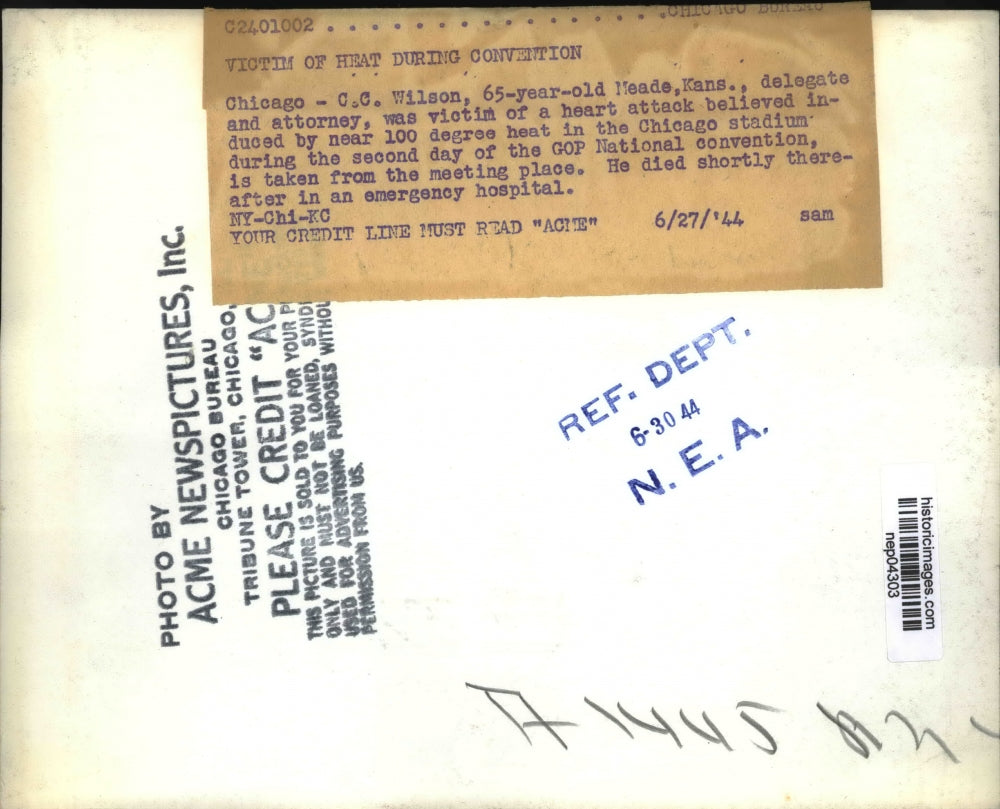 C2401002 . . . . . . . . . . . . . . . .CHICAGO BUREAU
VICTIM OF HEAT DURING CONVENTION
Chicago - C.C. Wilson, 65-year-old Meade,Kans., delegate
and attorney, was victim of a heart attack believed in-
duced by near 100 degree heat in the Chicago stadium
during the second day of the GOP National convention,
is taken from the meeting place. He died shortly there-
after in an emergency hospital.
NY-Chi-KC
YOUR CREDIT LINE MUST READ "ACME" 6/27/'44 sam
PHOTO BY
ACME NEWSPICTURES, Inc.
CHICAGO BUREAU
TRIBUNE TOWER, CHICAGO,
PLEASE CREDIT "AC
THIS PICTURE IS SOLD TO YOU FOR YOUR P
ONLY AND MUST NOT BE LOANED, SYNDI
USED FOR ADVERTISING PURPOSES WITHOU
PERMISSION FROM US.
REF. DEPT.
6-30 44
N. E. A.
historicimages.com
nep04303
1445